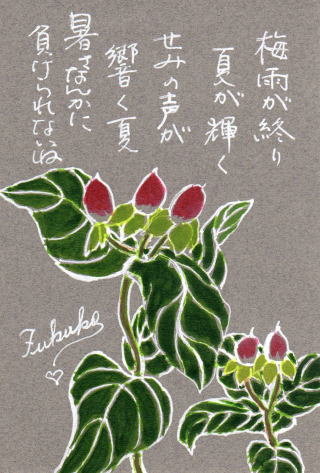 梅雨が終り
夏が輝く
せみの声が
響く夏
暑さなんかに
負けられないね
Fukuko